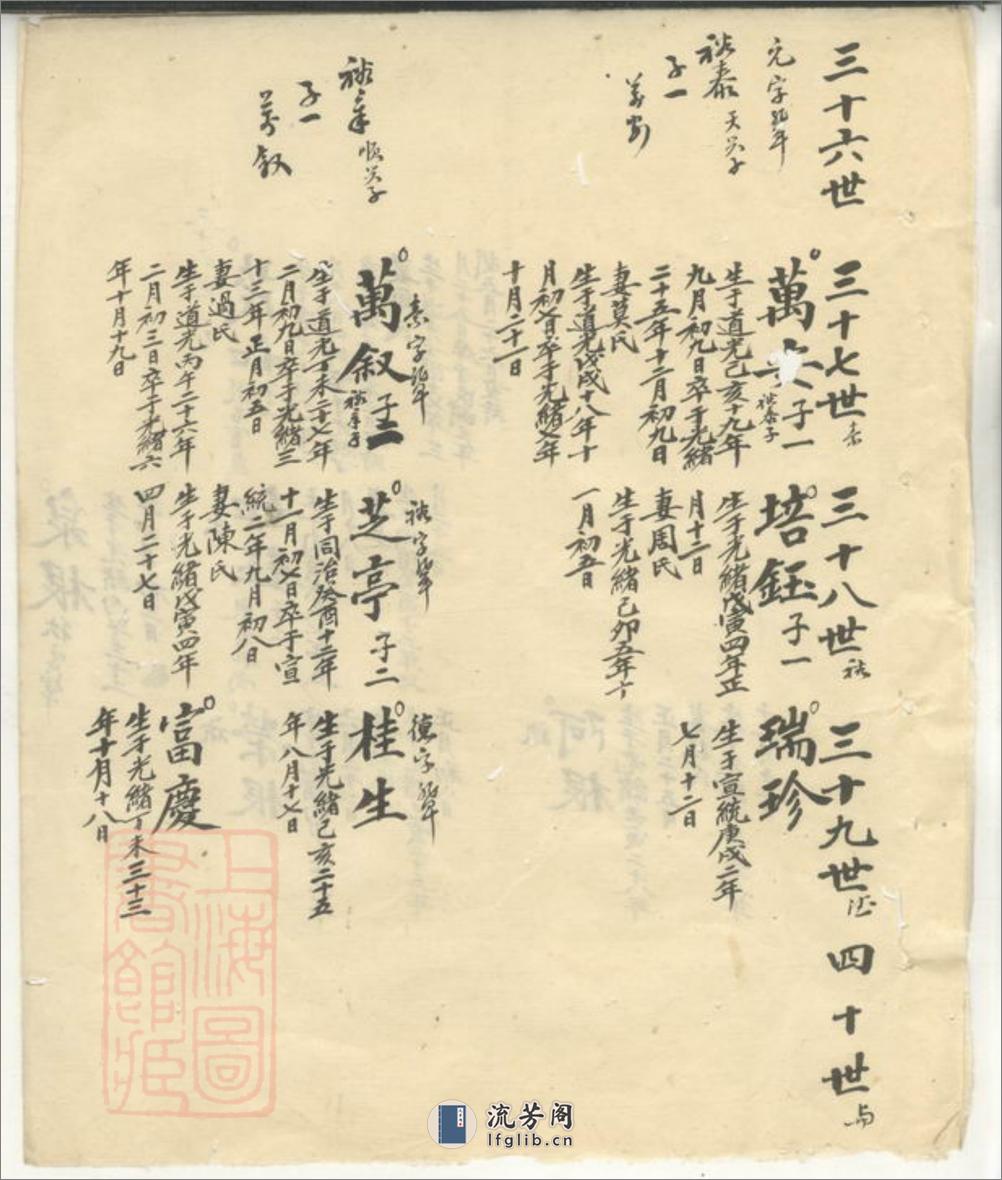 三十六世
三十七世
三十八世
三十九世
四十世
元字
裕泰
子一
裕 順公子
子一
萬叙
萬 子一
裕泰子
生于道光己亥十九年
九月初九日卒于光緒
二十五年十二月初九日
妻莫氏
生于道光戊戌十八年十
月初 日卒于光緒 年
十月二十一日
素字
萬叙
生于道光丁未二十七年
二月初九日卒于光緒三
十三年正月初五日
妻過氏
生于道光丙午二十六年
二月初三日卒于光緒六
年十月十九日
培鈺 子一
生于光緒戊寅四年正
月十二日
妻周氏
生于光緒己卯五年十
一月初五日
裕字
芝亭 子二
生于同治癸酉十二年
十一月初七日卒于宣
統二年九月初八日
妻陳氏
生于光緒戊寅四年
四月二十七日
瑞珍
生于宣統庚戌二年
七月十二日
德字
桂生
生于光緒己亥二十五
年八月十七日
富慶
生于光緒丁未三十三
年十月十八日
上海圖
書館藏
流芳阁
lfglib.cn